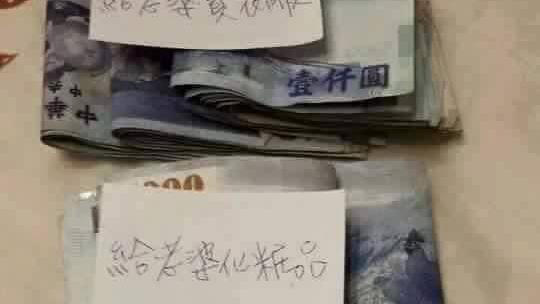 給老婆買衣服
壹仟圓
中華
中央
000
給老婆化粧品